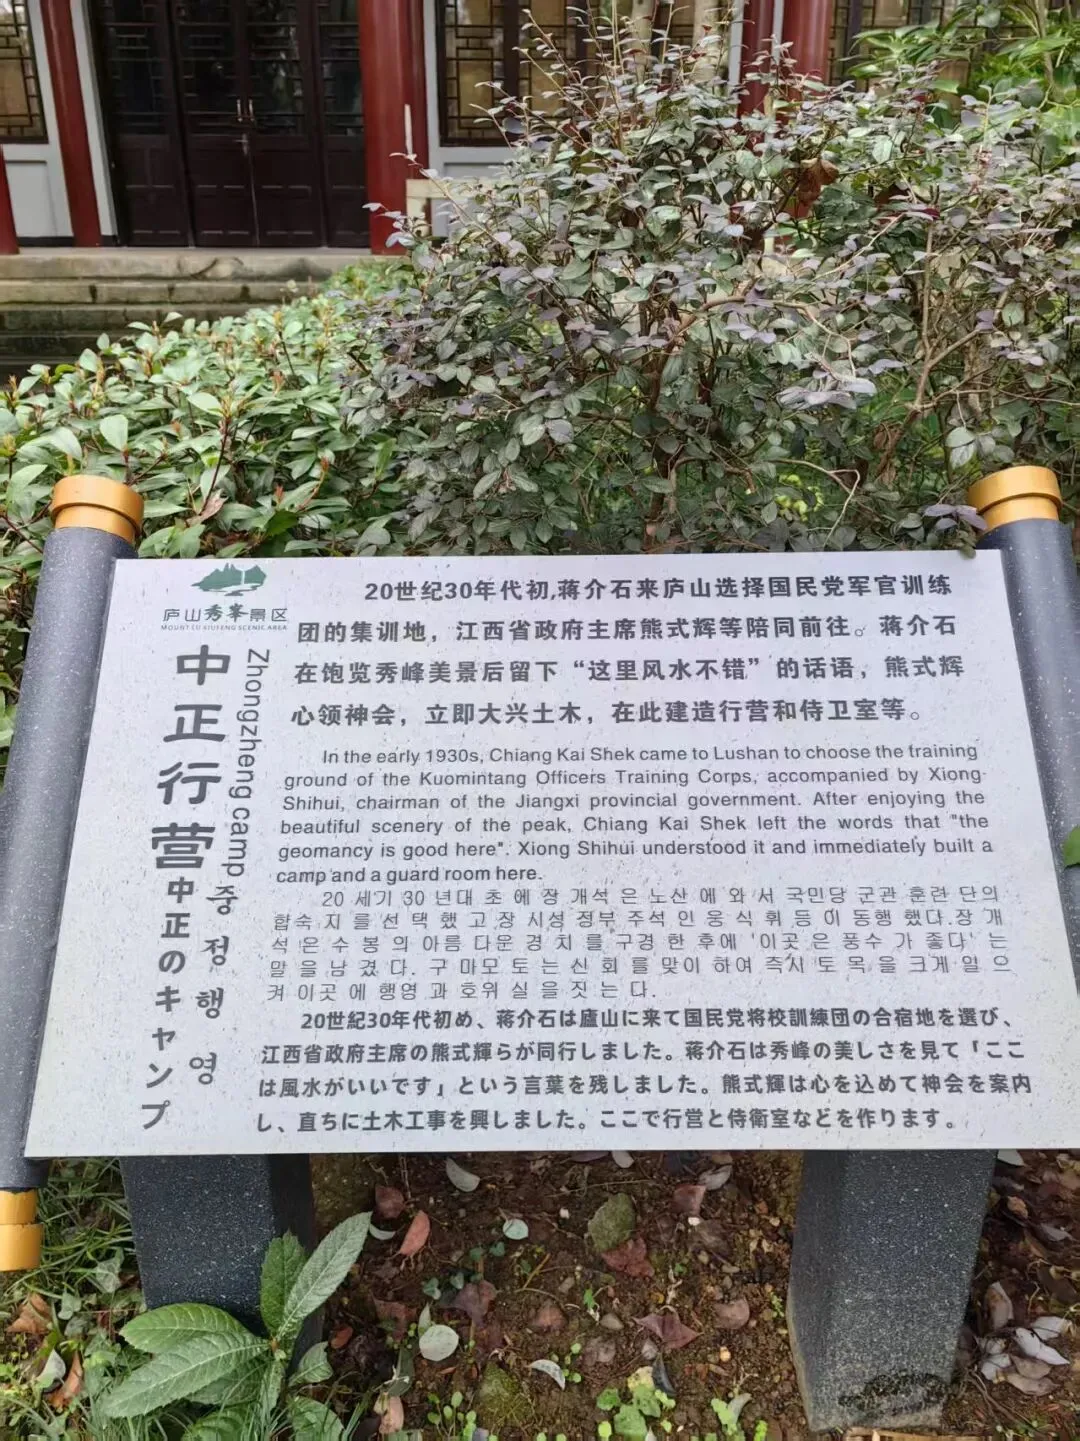 庐山秀峯景区
MOUNT LU XIUFENG SCENIC AREA
中正行营
Zhongzheng camp
中正のキャンプ
중정행영
20世纪30年代初,蒋介石来庐山选择国民党军官训练
团的集训地，江西省政府主席熊式辉等陪同前往。蒋介石
在饱览秀峰美景后留下“这里风水不错”的话语，熊式辉
心领神会，立即大兴土木，在此建造行营和侍卫室等。
In the early 1930s, Chiang Kai Shek came to Lushan to choose the training
ground of the Kuomintang Officers Training Corps, accompanied by Xiong
Shihui, chairman of the Jiangxi provincial government. After enjoying the
beautiful scenery of the peak, Chiang Kai Shek left the words that "the
geomancy is good here". Xiong Shihui understood it and immediately built a
camp and a guard room here.
20 세기 30 년대 초 에 장 개석 은 노산 에 와 서 국민당 군관 훈련 단의
합숙 지 를 선 택 했 고 장 시성 정부 주석 인 웅 식 휘 등 이 동행 했다.장 개
석 은 수 봉 의 아름 다운 경 치 를 구경 한 후에 '이곳 은 풍수 가 좋다' 는
말 을 남 겼 다. 구 마모 토 는 신 회 를 맞이 하여 즉시 토 목 을 크게 일 으
켜 이곳 에 행영 과 호위 실 을 짓 는 다.
20世紀30年代初め、蒋介石は廬山に来て国民党将校訓練団の合宿地を選び、
江西省政府主席の熊式輝らが同行しました。蒋介石は秀峰の美しさを見て「ここ
は風水がいいです」という言葉を残しました。熊式輝は心を込めて神会を案内
し、直ちに土木工事を興しました。ここで行営と侍衛室などを作ります。